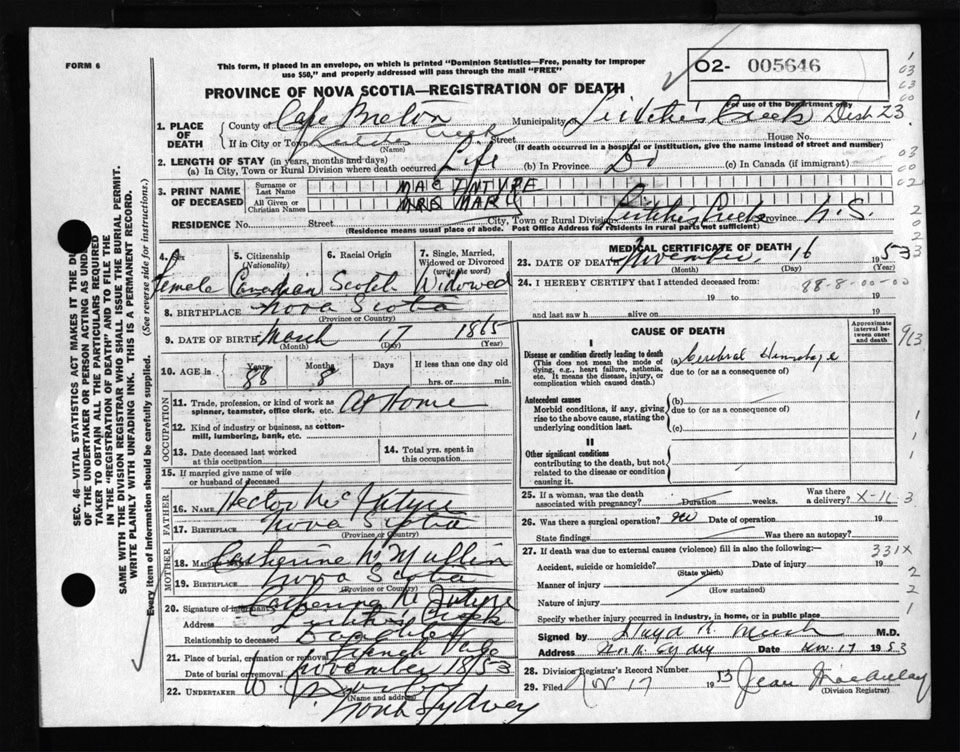 FORM 6
This form, if placed in an envelope, on which is printed "Dominion Statistics—Free, penalty for improper
use $50," and properly addressed will pass through the mail "FREE"
O2- 005646
For use of the Department only
PROVINCE OF NOVA SCOTIA—REGISTRATION OF DEATH
1. PLACE OF DEATH
County of Cape Breton Municipality of Leitche's Creek Dist 23
If in City or Town Leitches Creek Street House No.
(Name) (If death occurred in a hospital or institution, give the name instead of street and number)
2. LENGTH OF STAY (in years, months and days)
(a) In City, Town or Rural Division where death occurred Life (b) In Province Do (c) In Canada (if immigrant)
3. PRINT NAME OF DECEASED
Surname or Last Name MAC INTYRE
All Given or Christian Names MRS MARY
RESIDENCE No. Street City, Town or Rural Division Leitche's Creek Province N.S.
(Residence means usual place of abode. Post Office Address for residents in rural parts not sufficient)
4. Sex
Female
5. Citizenship (Nationality)
Canadian
6. Racial Origin
Scotch
7. Single, Married, Widowed or Divorced (write the word)
Widowed
8. BIRTHPLACE Nova Scotia
(Province or Country)
9. DATE OF BIRTH March 17 1865
(Month) (Day) (Year)
10. AGE in Years Months Days If less than one day old
88 8 hrs. or min.
OCCUPATION
11. Trade, profession, or kind of work as spinner, teamster, office clerk, etc. At Home
12. Kind of industry or business, as cotton-mill, lumbering, bank, etc.
13. Date deceased last worked at this occupation
14. Total yrs. spent in this occupation
15. If married give name of wife or husband of deceased
FATHER
16. Name Hector McIntyre
17. Birthplace Nova Scotia
(Province or Country)
MOTHER
18. Maiden Name Catherine McMullin
19. Birthplace Nova Scotia
(Province or Country)
20. Signature of informant Catherine McIntyre
Address Leitches Creek
Relationship to deceased Daughter
21. Place of burial, cremation or removal French Vale
Date of burial or removal November 18/53
22. UNDERTAKER W. J.
(Name and address)
North Sydney
SEC. 46—VITAL STATISTICS ACT MAKES IT THE DU
OF THE UNDERTAKER OR PERSON ACTING AS UNDE
TAKER TO OBTAIN ALL THE PARTICULARS REQUIRED
IN THE "REGISTRATION OF DEATH" AND TO FILE THE
SAME WITH THE DIVISION REGISTRAR WHO SHALL ISSUE THE BURIAL PERMIT.
WRITE PLAINLY WITH UNFADING INK. THIS IS A PERMANENT RECORD.
Every item of information should be carefully supplied. (See reverse side for instructions.)
MEDICAL CERTIFICATE OF DEATH
23. DATE OF DEATH November 16 1953
(Month) (Day) (Year)
24. I HEREBY CERTIFY that I attended deceased from:
88-8-00-00
19 to 19
and last saw h alive on 19
CAUSE OF DEATH
Approximate interval between onset and death
I
Disease or condition directly leading to death
(This does not mean the mode of dying, e.g., heart failure, asthenia, etc. It means the disease, injury, or complication which caused death.)
(a) Cerebral Hemorrhage
due to (or as a consequence of)
Antecedent causes
Morbid conditions, if any, giving rise to the above cause, stating the underlying condition last.
(b)
due to (or as a consequence of)
(c)
II
Other significant conditions
contributing to the death, but not related to the disease or condition causing it.
25. If a woman, was the death associated with pregnancy? Duration weeks. Was there a delivery? X-16
26. Was there a surgical operation? No Date of operation 19
State findings Was there an autopsy?
27. If death was due to external causes (violence) fill in also the following:— 331X
Accident, suicide or homicide? Date of injury 19
(State which)
Manner of injury
(How sustained)
Nature of injury
Specify whether injury occurred in industry, in home, or in public place
Signed by M.D.
Address North Sydney Date Nov. 17 1953
28. Division Registrar's Record Number
29. Filed Nov 17 1953 Jean MacAulay
(Division Registrar)